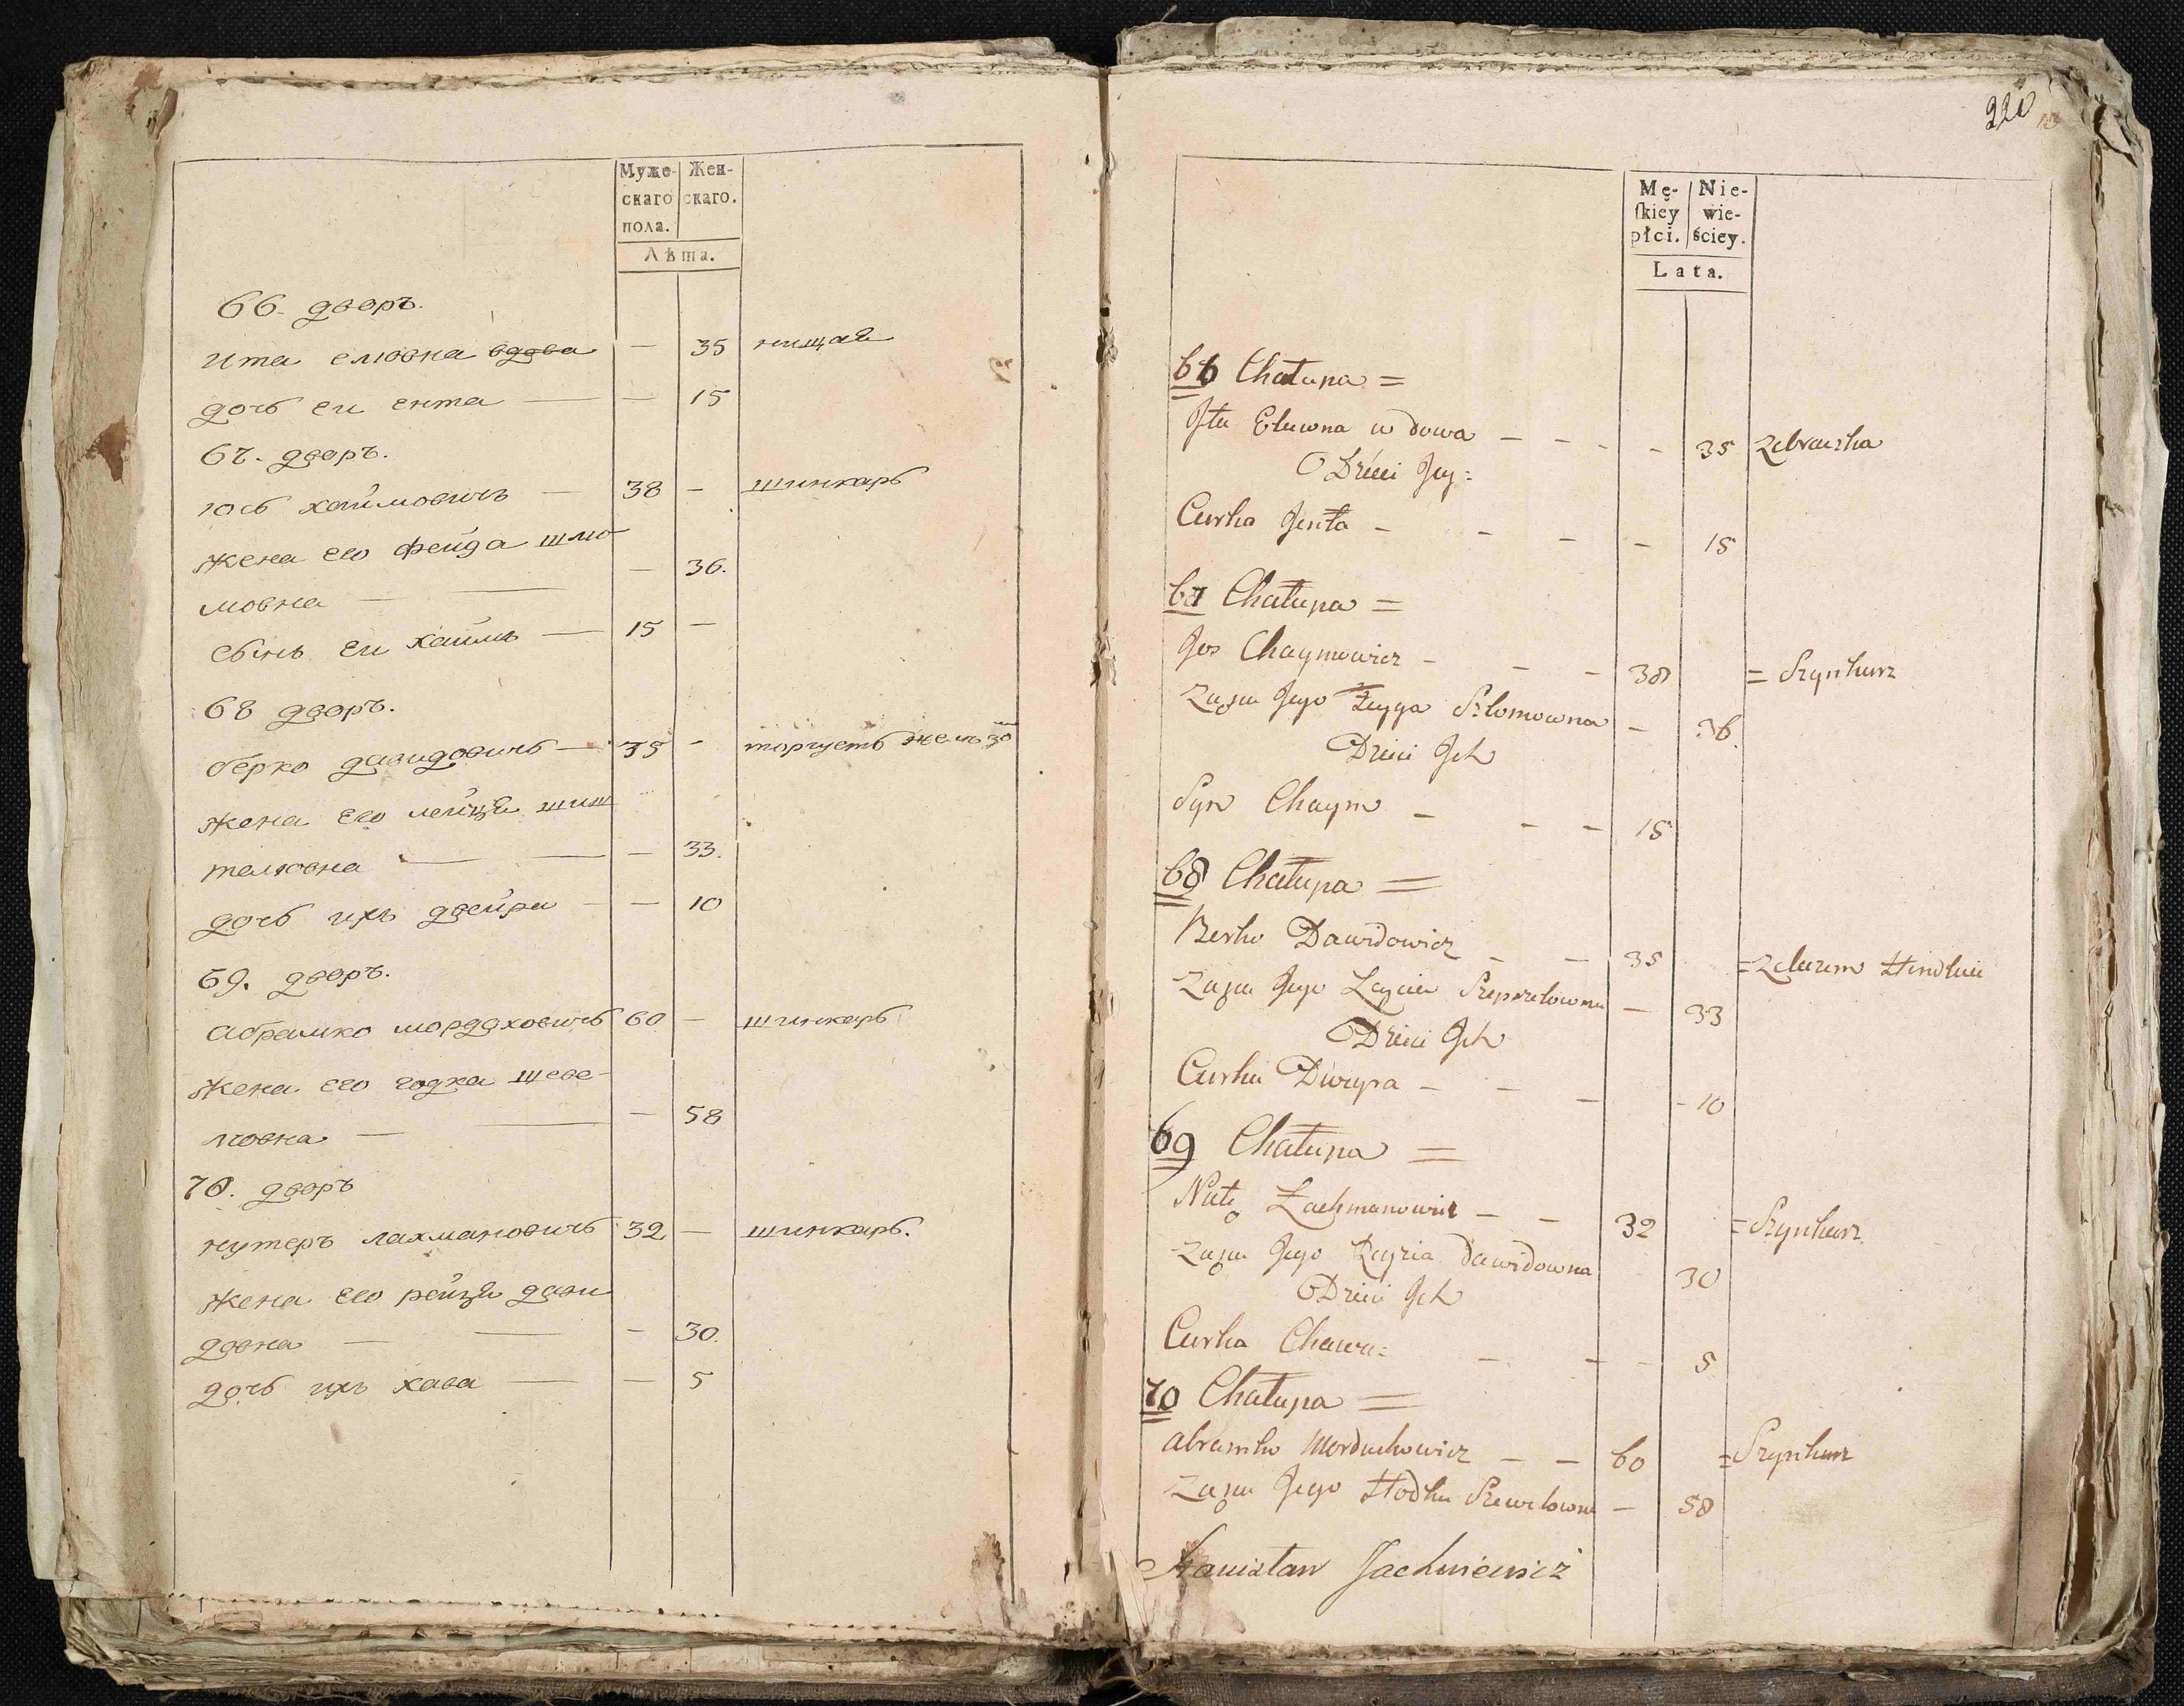 Муже-
скаго
пола.
Жен-
скаго.
Лѣта.
66. дворъ.
ита елювна вдова — 35 нищая
дочь еи ента — — 15
67. дворъ.
юсь хаймовичъ — 38 — шинкарь
жена его фейга шлю
мовна — — — 36.
сынъ еи хаимъ — 15 —
68 дворъ.
берко давидовичь — 35 - торгуетъ
жена его лейця
телювна — — — 33.
дочь ихъ двейра — — 10
69. дворъ.
абрамко мордховичь 60 — шинкарь
жена его годка шеве-
лювна — — — 58
70. дворъ
нутеръ лахмановичь 32 — шинкарь.
жена его рейзя дави
довна — — — 30.
дочь ихъ хава — — 5
220
Mę-
ſkiey
płci.
Nie-
wie-
ściey.
Lata.
66 Chałupa =
Jta Eluwna wdowa - - - - 35 Zebraczka
Dzieci Jey:
Curka Jenta - - - - 15
67 Chałupa =
Jos Chaymowicz - - - 38 = Szynkarz
Zona Jego Szlomowna - 36.
Dzieci Jch
Syn Chaym - - - 15
68 Chałupa =
Berko Dawidowicz - - 35 = Zelazem Hindluie
Zona Jego Leycia - 33
Dzieci Jch
Curka Dweyra - - - - 10
69 Chałupa =
Nuta Lachmanowicz - - 32 = Szynkarz
Zona Jego Reyzia Dawidowna 30
Dzieci Jch
Curka Chawa: - - - 5
70 Chałupa =
Abramko Morduchowicz - - 60 = Szynkarz
Zona Jego Hodka Szewelowna - 58
Stanisław Jachniewicz